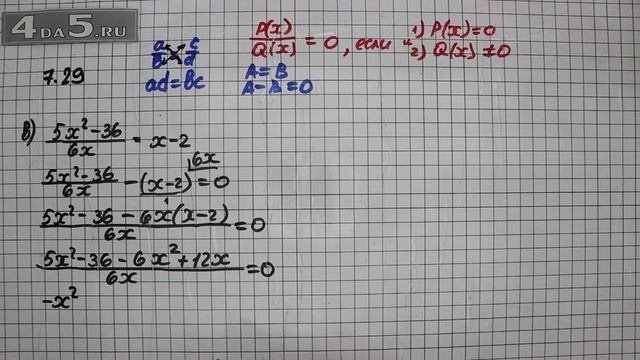 4DA5.RU
7.29
a/b = c/d
ad = bc
P(x)/Q(x) = 0, если 1) P(x) = 0
и 2) Q(x) ≠ 0
A = B
A - B = 0
в) (5x² - 36)/(6x) = x - 2
(5x² - 36)/(6x) - (x - 2) = 0
6x
(5x² - 36 - 6x(x - 2))/(6x) = 0
(5x² - 36 - 6x² + 12x)/(6x) = 0
-x²